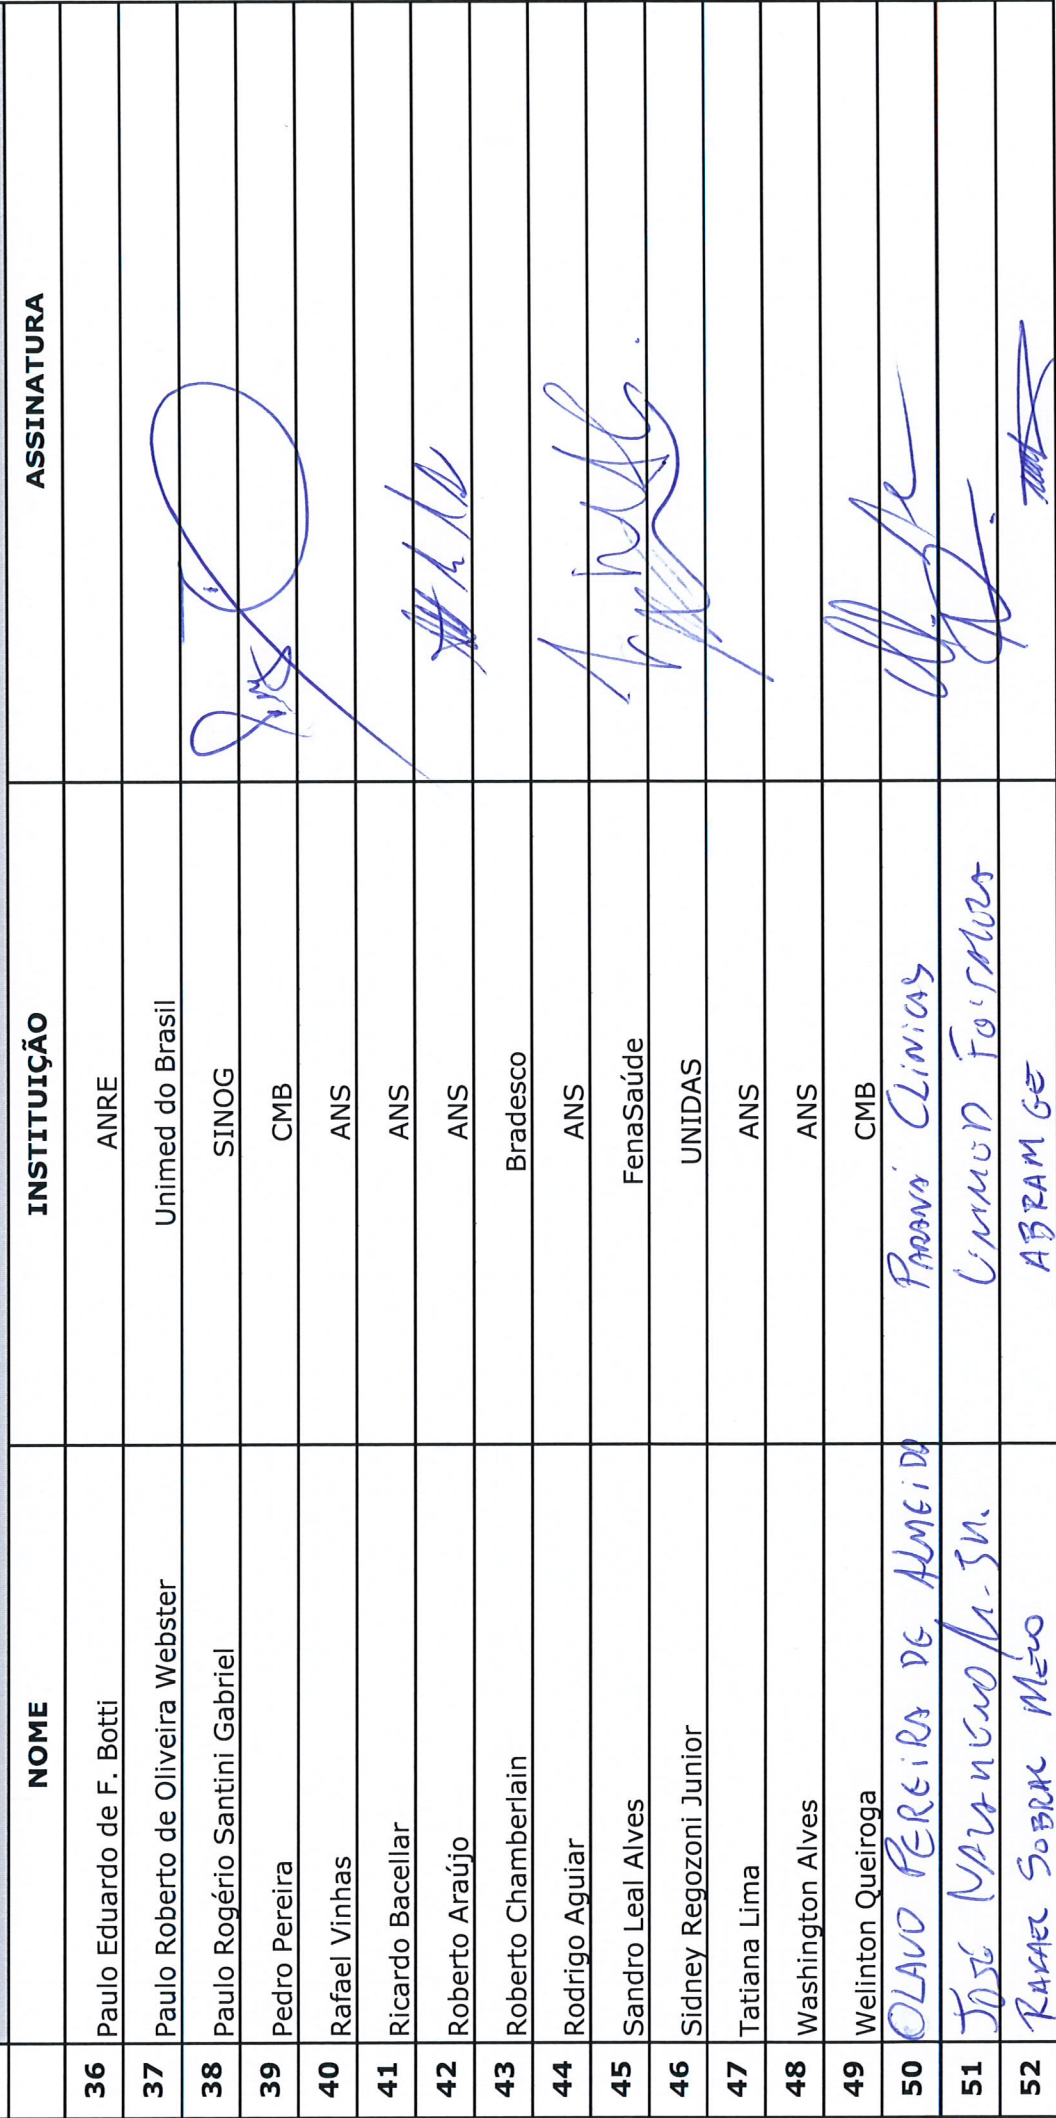 NOME INSTITUIÇÃO ASSINATURA
36 Paulo Eduardo de F. Botti ANRE
37 Paulo Roberto de Oliveira Webster Unimed do Brasil
38 Paulo Rogério Santini Gabriel SINOG
39 Pedro Pereira CMB
40 Rafael Vinhas ANS
41 Ricardo Bacellar ANS
42 Roberto Araújo ANS
43 Roberto Chamberlain Bradesco
44 Rodrigo Aguiar ANS
45 Sandro Leal Alves FenaSaúde
46 Sidney Regozoni Junior UNIDAS
47 Tatiana Lima ANS
48 Washington Alves ANS
49 Welinton Queiroga CMB
50 OLAVO PEREIRA DE ALMEIDA PARANÁ CLÍNICAS
51 JOSÉ JR.
52 RAFAEL SOBRAL MELO ABRAMGE